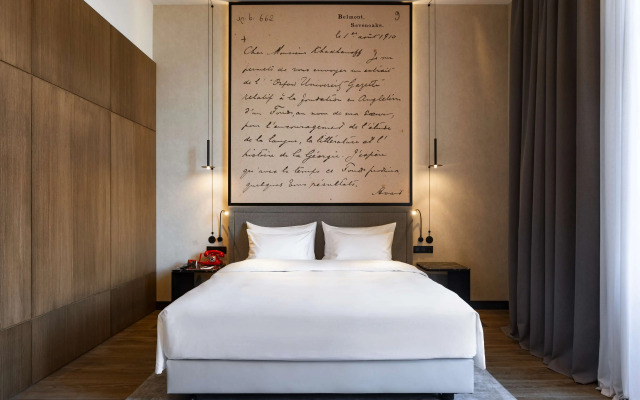 Belmont,
Sevenoaks.
le 1er août 1910
Cher Monsieur Je me
permets de vous envoyer un extrait
de l' "Oxford University Gazette"
relatif à la fondation en Angleterre
d'un Fond, au nom de ma sœur,
pour l'encouragement de l'étude
de la langue, la littérature et l'
histoire de la Géorgie. J'espère
qu'avec le temps ce Fond portera
quelques bons résultats.